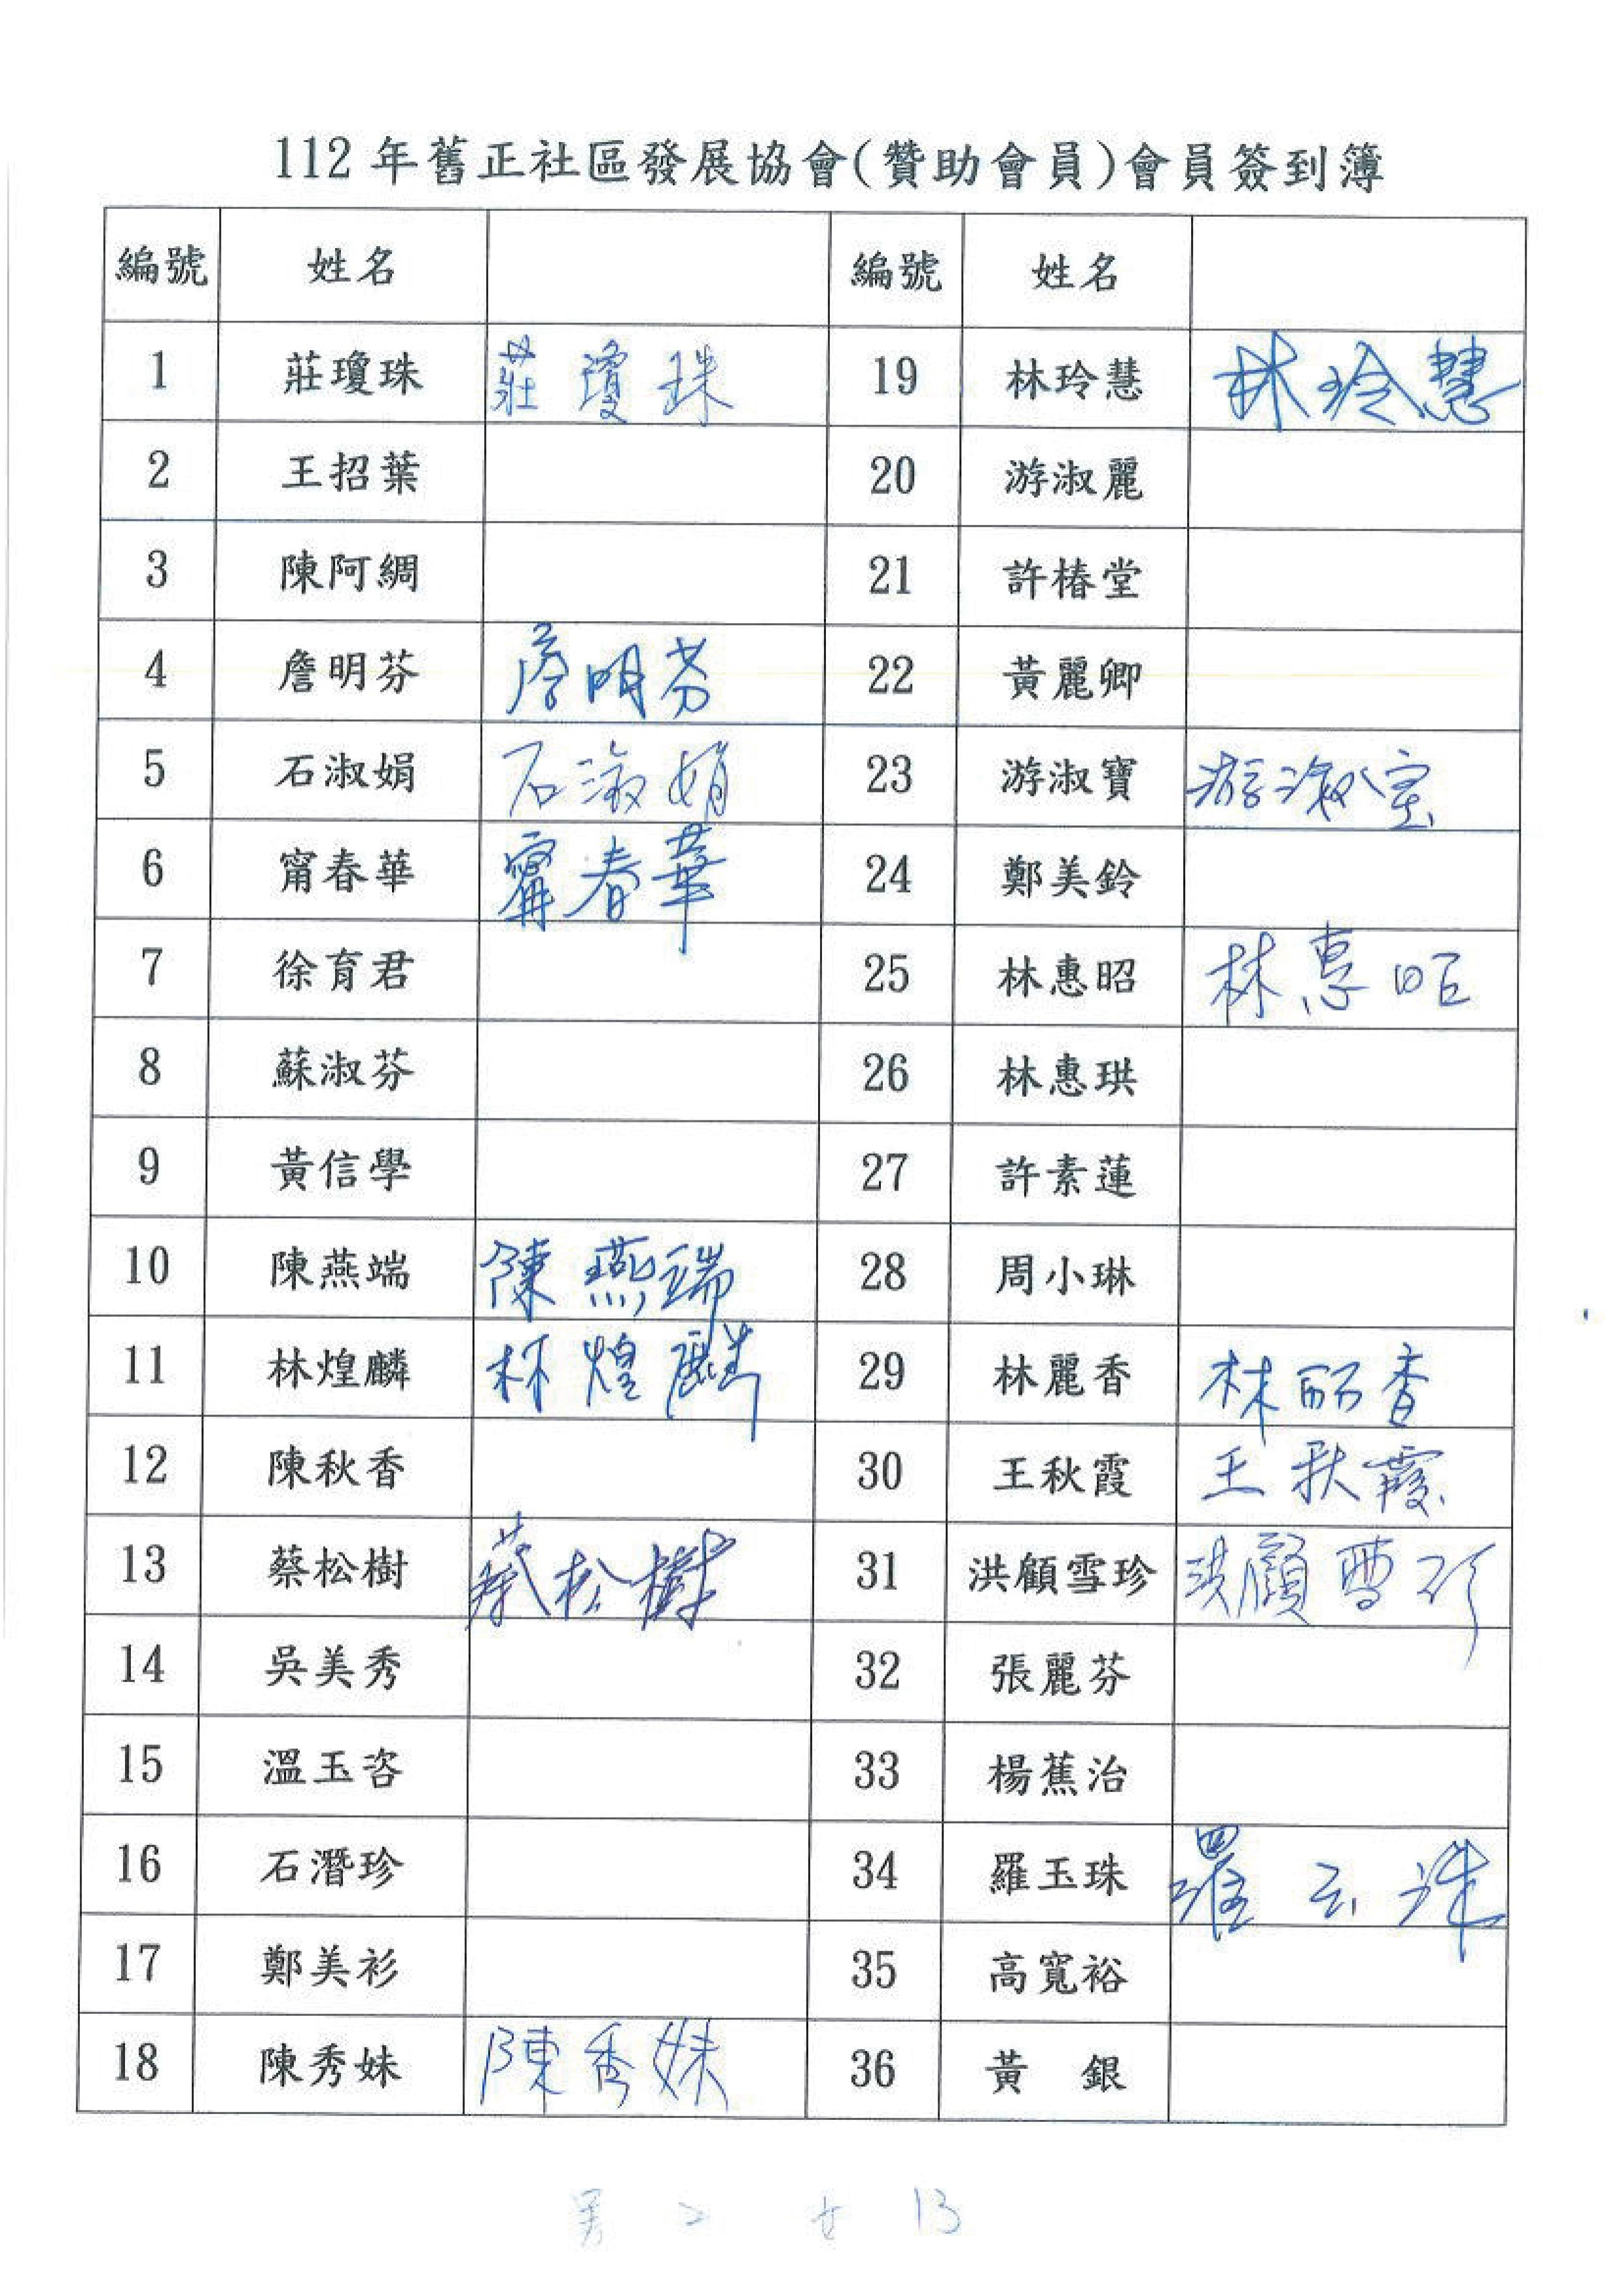 112年舊正社區發展協會(贊助會員)會員簽到簿
編號 姓名 編號 姓名
1 莊瓊珠 莊瓊珠 19 林玲慧 林玲慧
2 王招葉 20 游淑麗
3 陳阿綢 21 許椿堂
4 詹明芬 詹明芬 22 黃麗卿
5 石淑娟 石淑娟 23 游淑寶 游淑宝
6 甯春華 甯春華 24 鄭美鈴
7 徐育君 25 林惠昭 林惠昭
8 蘇淑芬 26 林惠珙
9 黃信學 27 許素蓮
10 陳燕端 陳燕端 28 周小琳
11 林煌麟 林煌麟 29 林麗香 林丽香
12 陳秋香 30 王秋霞 王秋霞
13 蔡松樹 蔡松樹 31 洪顧雪珍 洪顧雪珍
14 吳美秀 32 張麗芬
15 溫玉咨 33 楊蕉治
16 石潛珍 34 羅玉珠 羅玉珠
17 鄭美衫 35 高寬裕
18 陳秀妹 陳秀妹 36 黃 銀
男 2 女 13